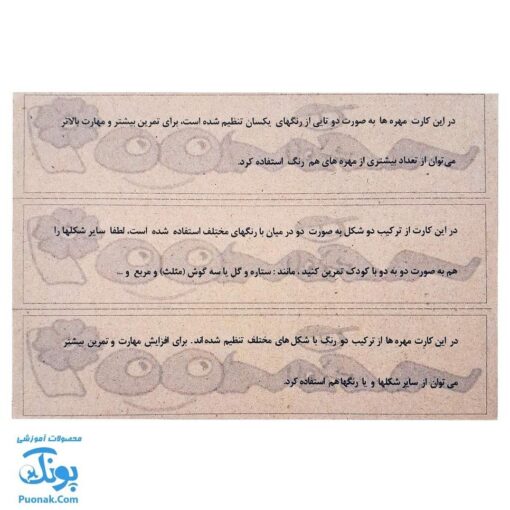 در این کارت مهره ها به صورت دو تایی از رنگهای یکسان تنظیم شده است، برای تمرین بیشتر و مهارت بالاتر
می توان از تعداد بیشتری از مهره های هم رنگ استفاده کرد.
در این کارت از ترکیب دو شکل به صورت دو در میان با رنگهای مختلف استفاده شده است، لطفا سایر شکلها را
هم به صورت دو به دو با کودک تمرین کنید ، مانند : ستاره و گل یا سه گوش (مثلث) و مربع و ...
در این کارت مهره ها از ترکیب دو رنگ با شکل های مختلف تنظیم شده اند. برای افزایش مهارت و تمرین بیشتر
می توان از سایر شکلها و یا رنگها هم استفاده کرد.
محصولات آموزشی
پونک
Puonak.Com